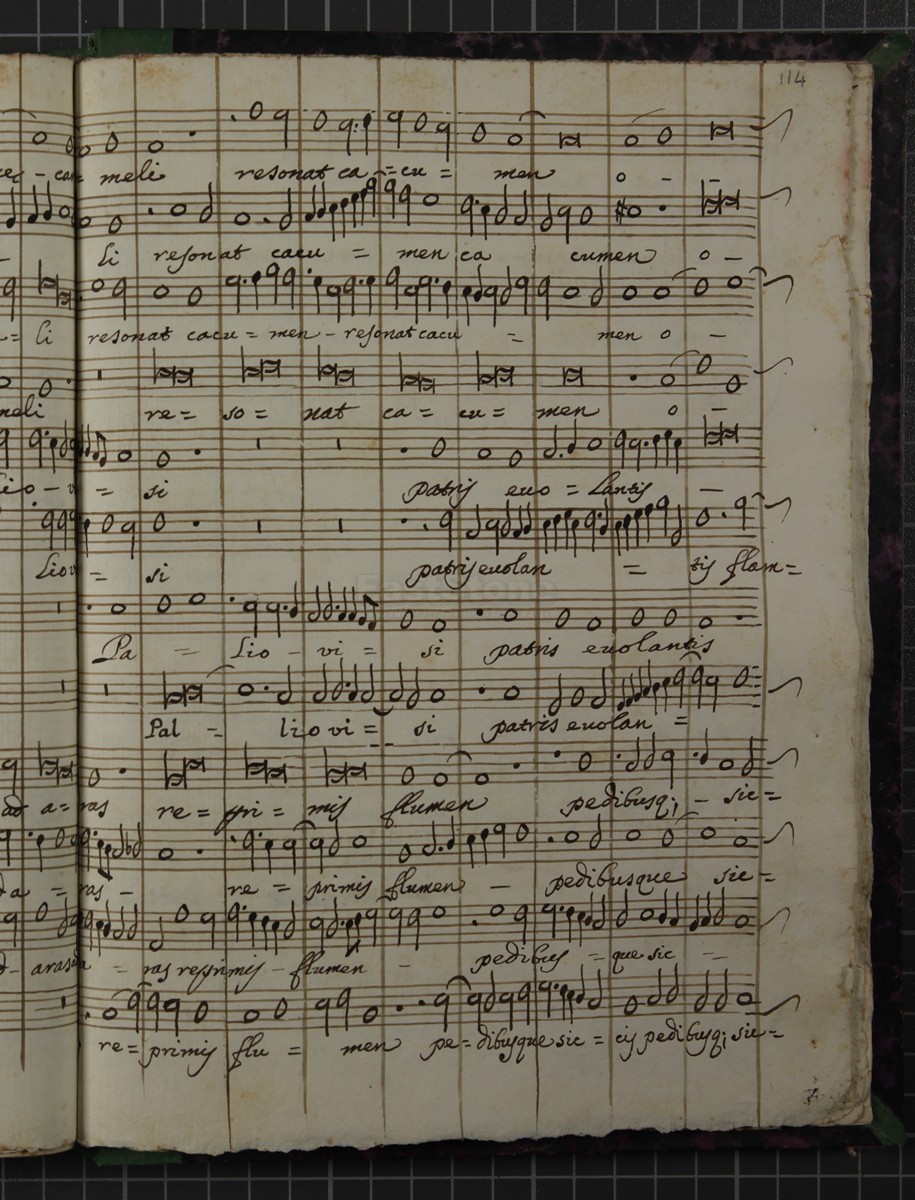 114
meli resonat ca = cu = men o -
li resonat cacu = men ca cumen o -
= li resonat cacu = men - resonat cacu = men o -
meli re = so = nat ca = cu = men o -
lio - vi = si patris evo = lantis -
Liovi = si patris evolan = tis flam =
Pa = Lio - vi = si patris evolantis
Pal = lio vi = si patris evolan =
a = ras re = pri = mis flumen pedibusq; - sic =
a = ras - re = primis flumen - pedibusque sic =
- ras resprimis - flumen - pedibus = que sic -
re = primis flu = men pe = dibusque sic = cis pedibusq; sic =